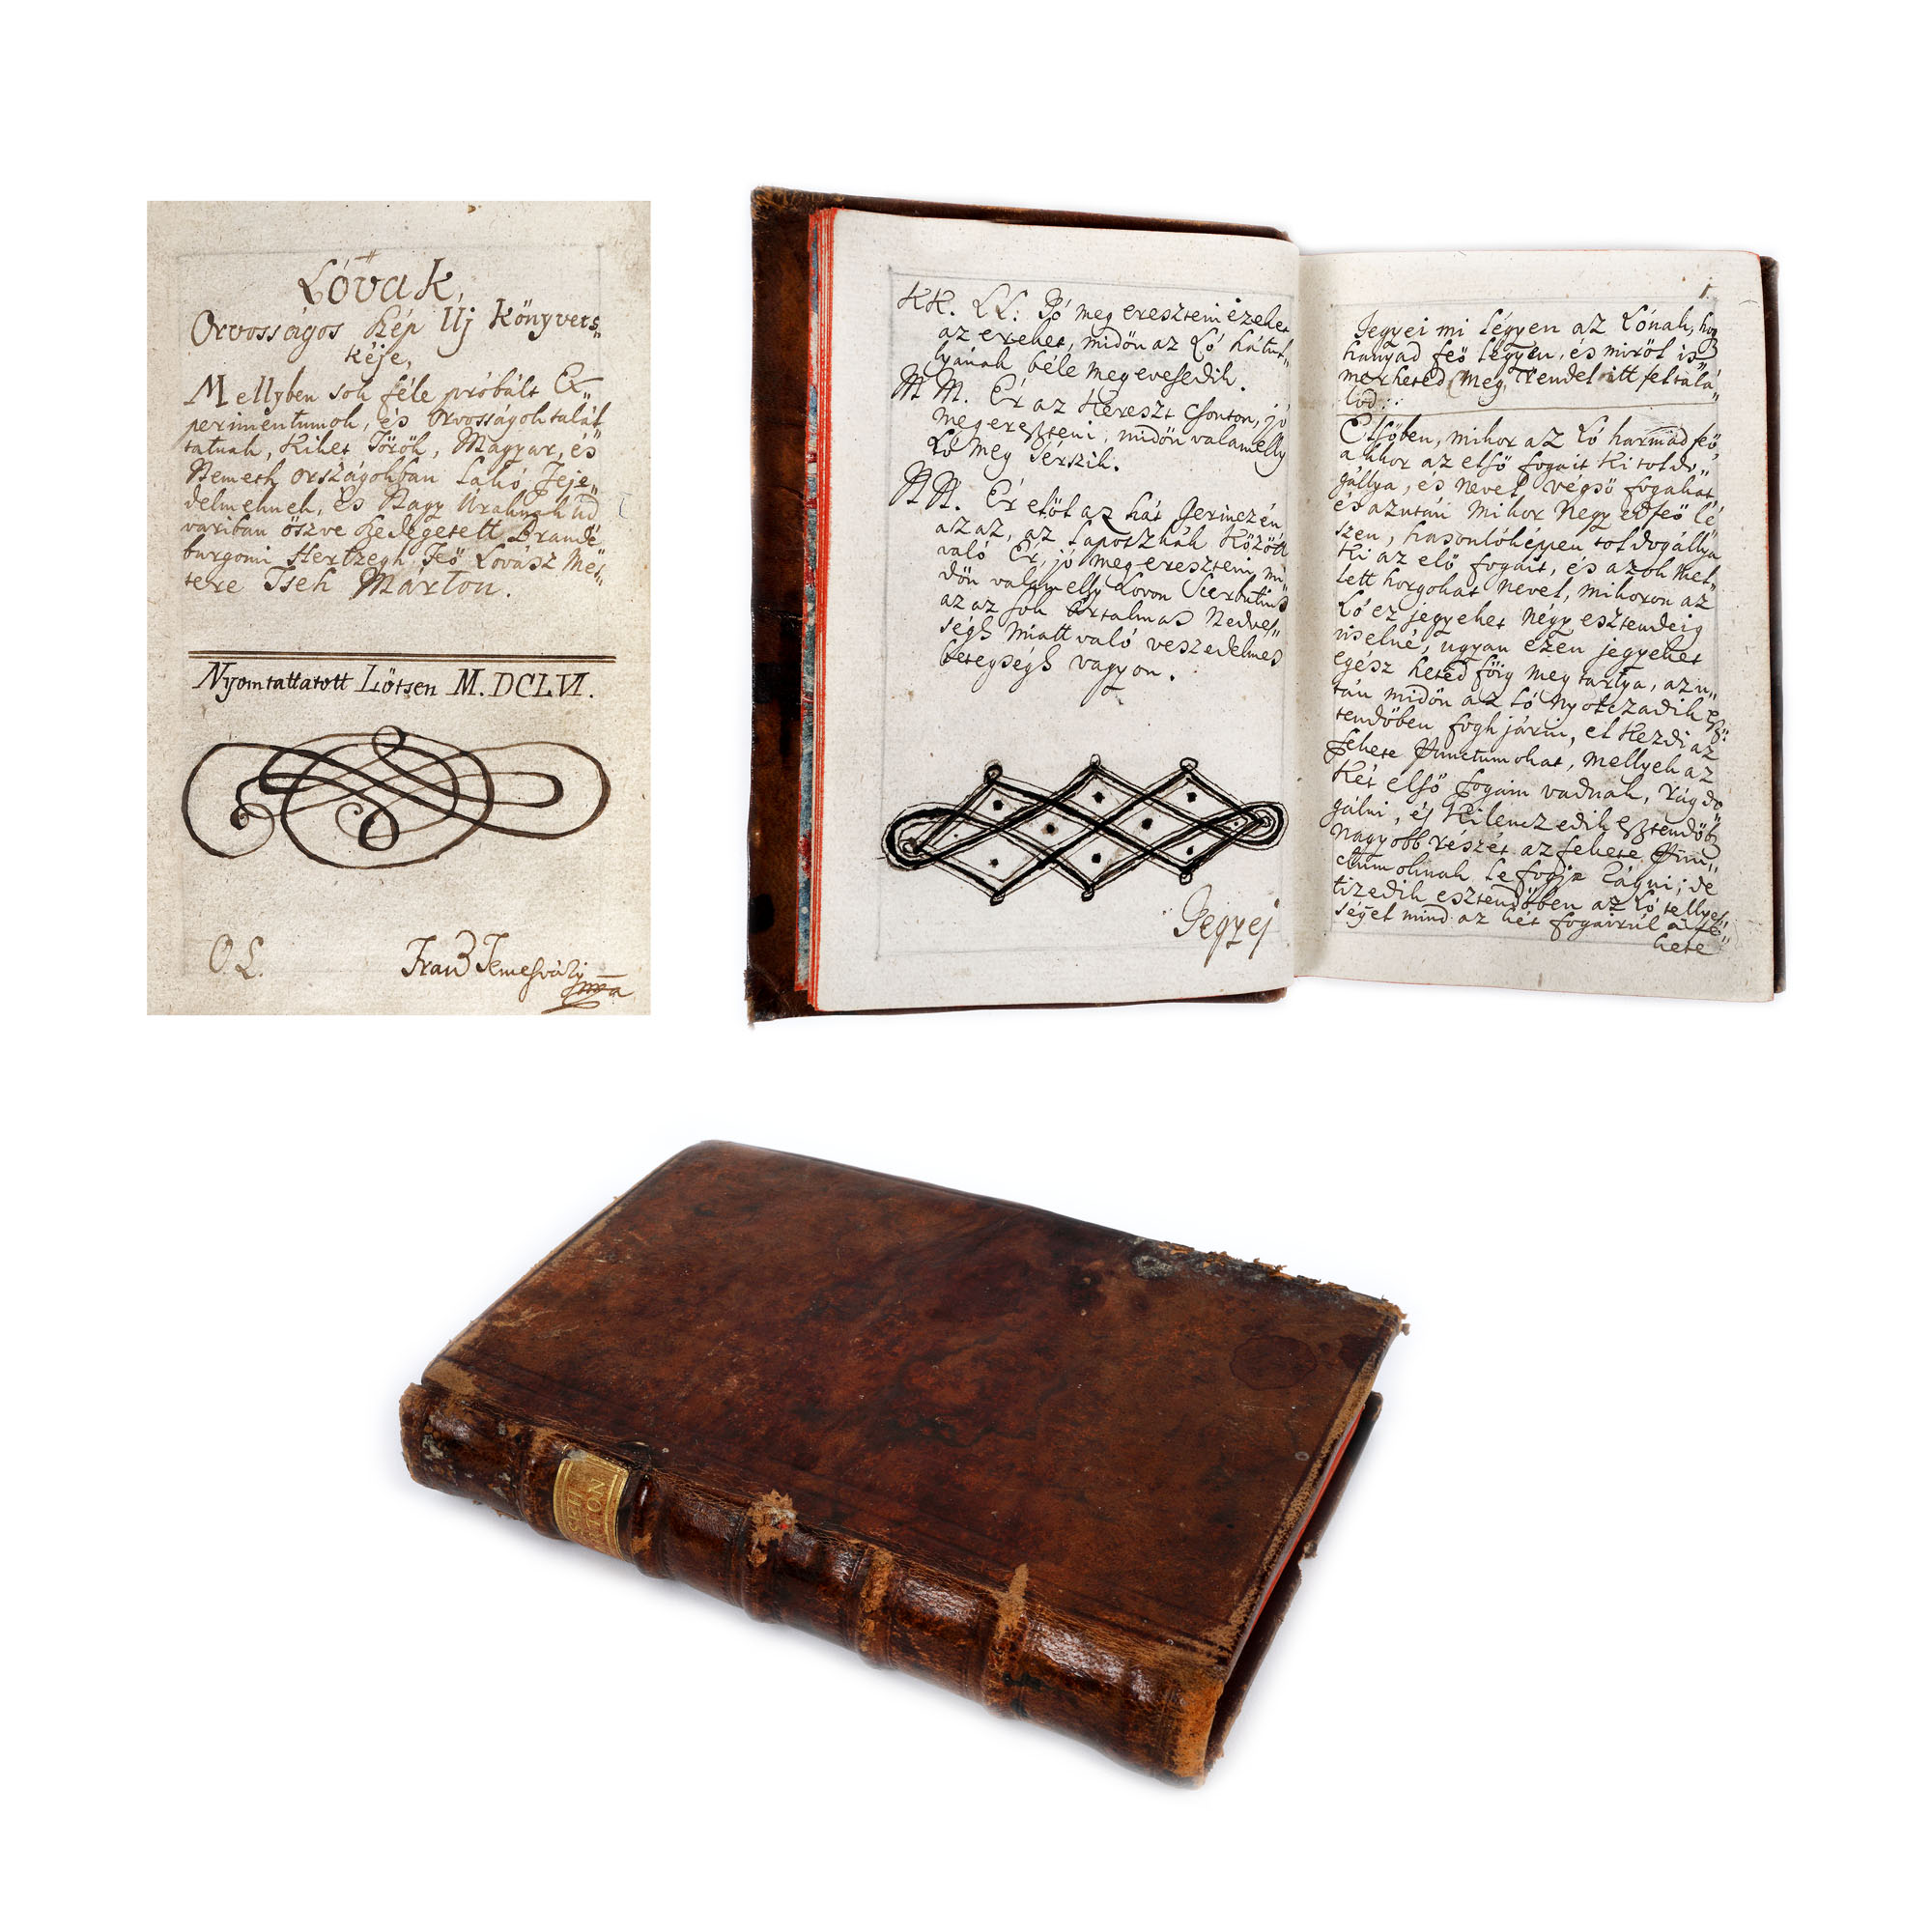 Lóvak,
Orvosságos kép Uj Könyvets„
kéje,
Mellyben sok féle próbált Ex„
perimentumok, és Orvosságok talál„
tatnak, Kiket Török, Magyar, és
Nemeth országokban Lakó Feje„
delmeknek, és Nagy Uraknak ud„
variban öszve kedegetett Brandé„
burgomi Hertzegh Feö Lovász Mes„
tere Tseh Márton.
Nyomtattatott Lötsen M.DCLVI.
O L.
Franz Temesváry
KK. LL. Jó meg ereszteni ezeket
az ereket, midőn az Ló hátul„
lyának béle meg evesedik.
MM. Ér az Kereszt Csonton, jó
meg ereszteni, midőn valamelly
Ló meg Térszik.
NN. Ér elöl az hát Gerinczén
azaz, az Laposzkák között
való Ér, jó meg ereszteni, mi„
dőn valamelly Lovon Scerbutius
azaz sok ártalmas Nedves„
ségh Miatt való veszedelmes
betegségh vagyon.
Jegyej
1.
Jegyei mi légyen az Lónak, hog
hanyad feö légyen, és miröl is„
merheted meg, rendel itt feltalá„
lod:
Elsöben, mikor az Ló harmad feö,
akkor az elsö fogait ki toldo„
gállya, és nevel végsö fogakat,
és azután mikor Negy ed feö lé„
szen, hasonlóképpen toldogállya
ki az elö fogait, és azok mel„
lett horgokat nevel, mikoron az
Ló ez jegyeket négy esztendeig
viselné, ugyan ezen jegyeket
egész heted föig meg tartya, azu„
tán midőn az Ló nyolczadik esz„
tendöben fogh járni, el kezdi az
fekete Punctumokat, mellyek az
két elsö fogain vadnak, rágdo„
gálni, és kilenczedik esztendöb„
nagyobb részét az fekete Pun„
ctumoknak le fogja rágni; de
tizedik esztendöben az Ló tellyes„
séget mind az két fogairúl a fe„
kete